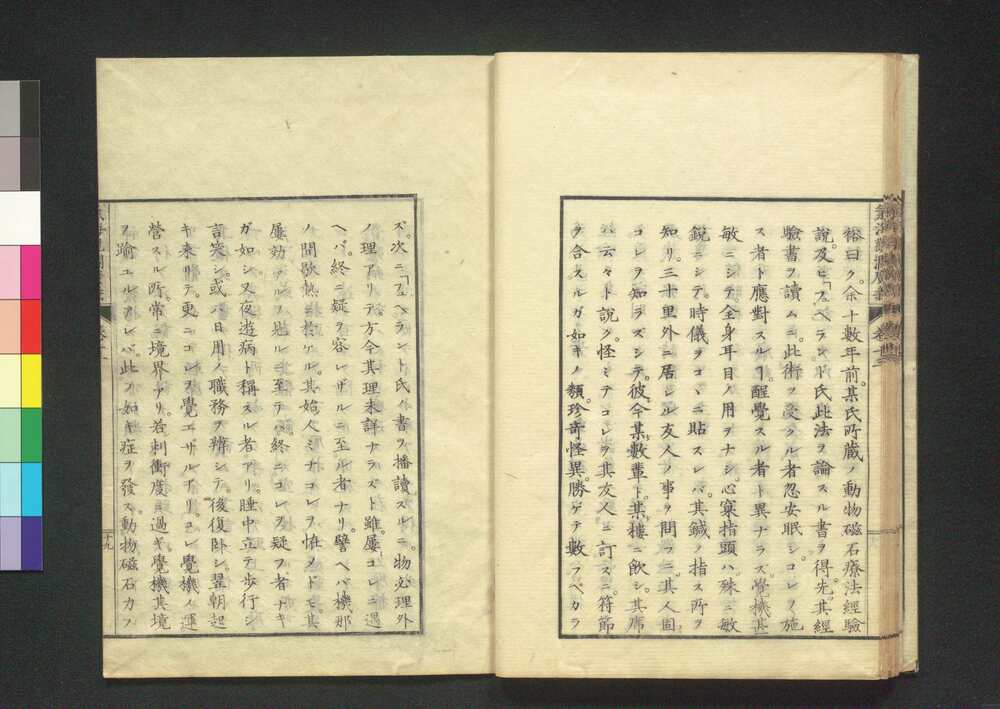 裕曰ク余十數年前某氏所蔵ノ動物磁石療法經驗
説及ヒ「フヘランド」氏此法ヲ論スル書ヲ得先其經
驗書ヲ讀ムニ此術ヲ受クル者忽安眠シコレヲ施
ス者ト應對スルヿ醒覺スル者ト異ナラス覺機甚
敏ニシテ全身耳目ノ用ヲナシ心窠指頭ハ殊ニ敏
鋭ニシテ時儀ヲコヽニ貼スレハ其鍼ノ指ス所ヲ
知リ三十里外ニ居シル友人ノ事ヲ問フニ其人固
コレヲ知ラズシテ彼今某數輩ト某樓ニ飲シ其席
ハ云々ト説ク怪ミテコレヲ其友人ニ訂スニ符節
ヲ合スルガ如キノ類珍奇怪異勝ゲテ數フベカラ
ズ次ニ「フヘランド」氏ノ書ヲ播讀スルニ物必理外
ノ理アリテ方今其理未詳ナラスト雖屢コレニ遇
ヘバ終ニ疑ヲ容レザルニ至ル者ナリ譬ヘバ機那
ノ間歇熱ニ於ケル其始人ミナコレヲ怪メドモ其
屢効アルヲ見ルニ至テハ終ニコレヲ疑フ者ナキ
ガ如シ又夜遊病ト稱スル者アリ睡中立テ歩行シ
言笑シ或ハ日用ノ職務ヲ辨シテ後復卧シ翌朝起
キ来リテ更ニコレヲ覺エザルアリコレ覺機ノ運
營スル所常ニ境界アリ若刺衝度ニ過ギ覺機其境
ヲ踰ユルアレバ此ノ如キ症ヲ發ス動物磁石力ヲ
卷廿三
十九